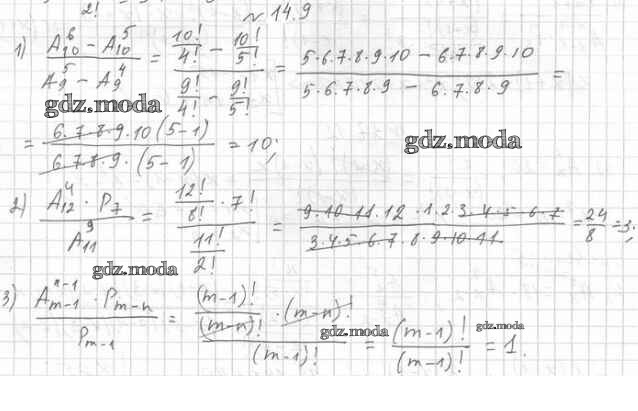 2!
№ 14.9
1) (A₁₀⁶ − A₁₀⁵)/(A₉⁵ − A₉⁴) = (10!/4! − 10!/5!)/(9!/4! − 9!/5!) = (5·6·7·8·9·10 − 6·7·8·9·10)/(5·6·7·8·9 − 6·7·8·9) =
gdz.moda
gdz.moda
= (6·7·8·9·10(5−1))/(6·7·8·9·(5−1)) = 10;
2) (A₁₂⁴ · P₇)/A₁₁⁹ = (12!/8! · 7!)/(11!/2!) = (9·10·11·12·1·2·3·4·5·6·7)/(3·4·5·6·7·8·9·10·11) = 24/8 = 3;
gdz.moda
3) (Aₘ₋₁ⁿ⁻¹ · Pₘ₋ₙ)/Pₘ₋₁ = ((m−1)!/(m−n)! · (m−n)!)/(m−1)! = (m−1)!/(m−1)! = 1.
gdz.moda
gdz.moda